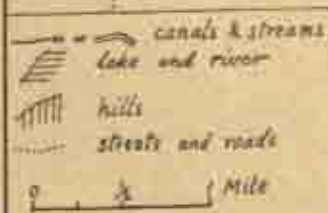 canals & streams
lake and river
hills
streets and roads
0 ½ 1 Mile